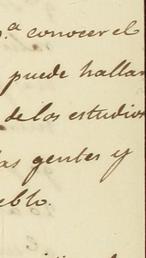 p.ª conocer el
puede hallar
de los estudios
as gentes y
eblo.